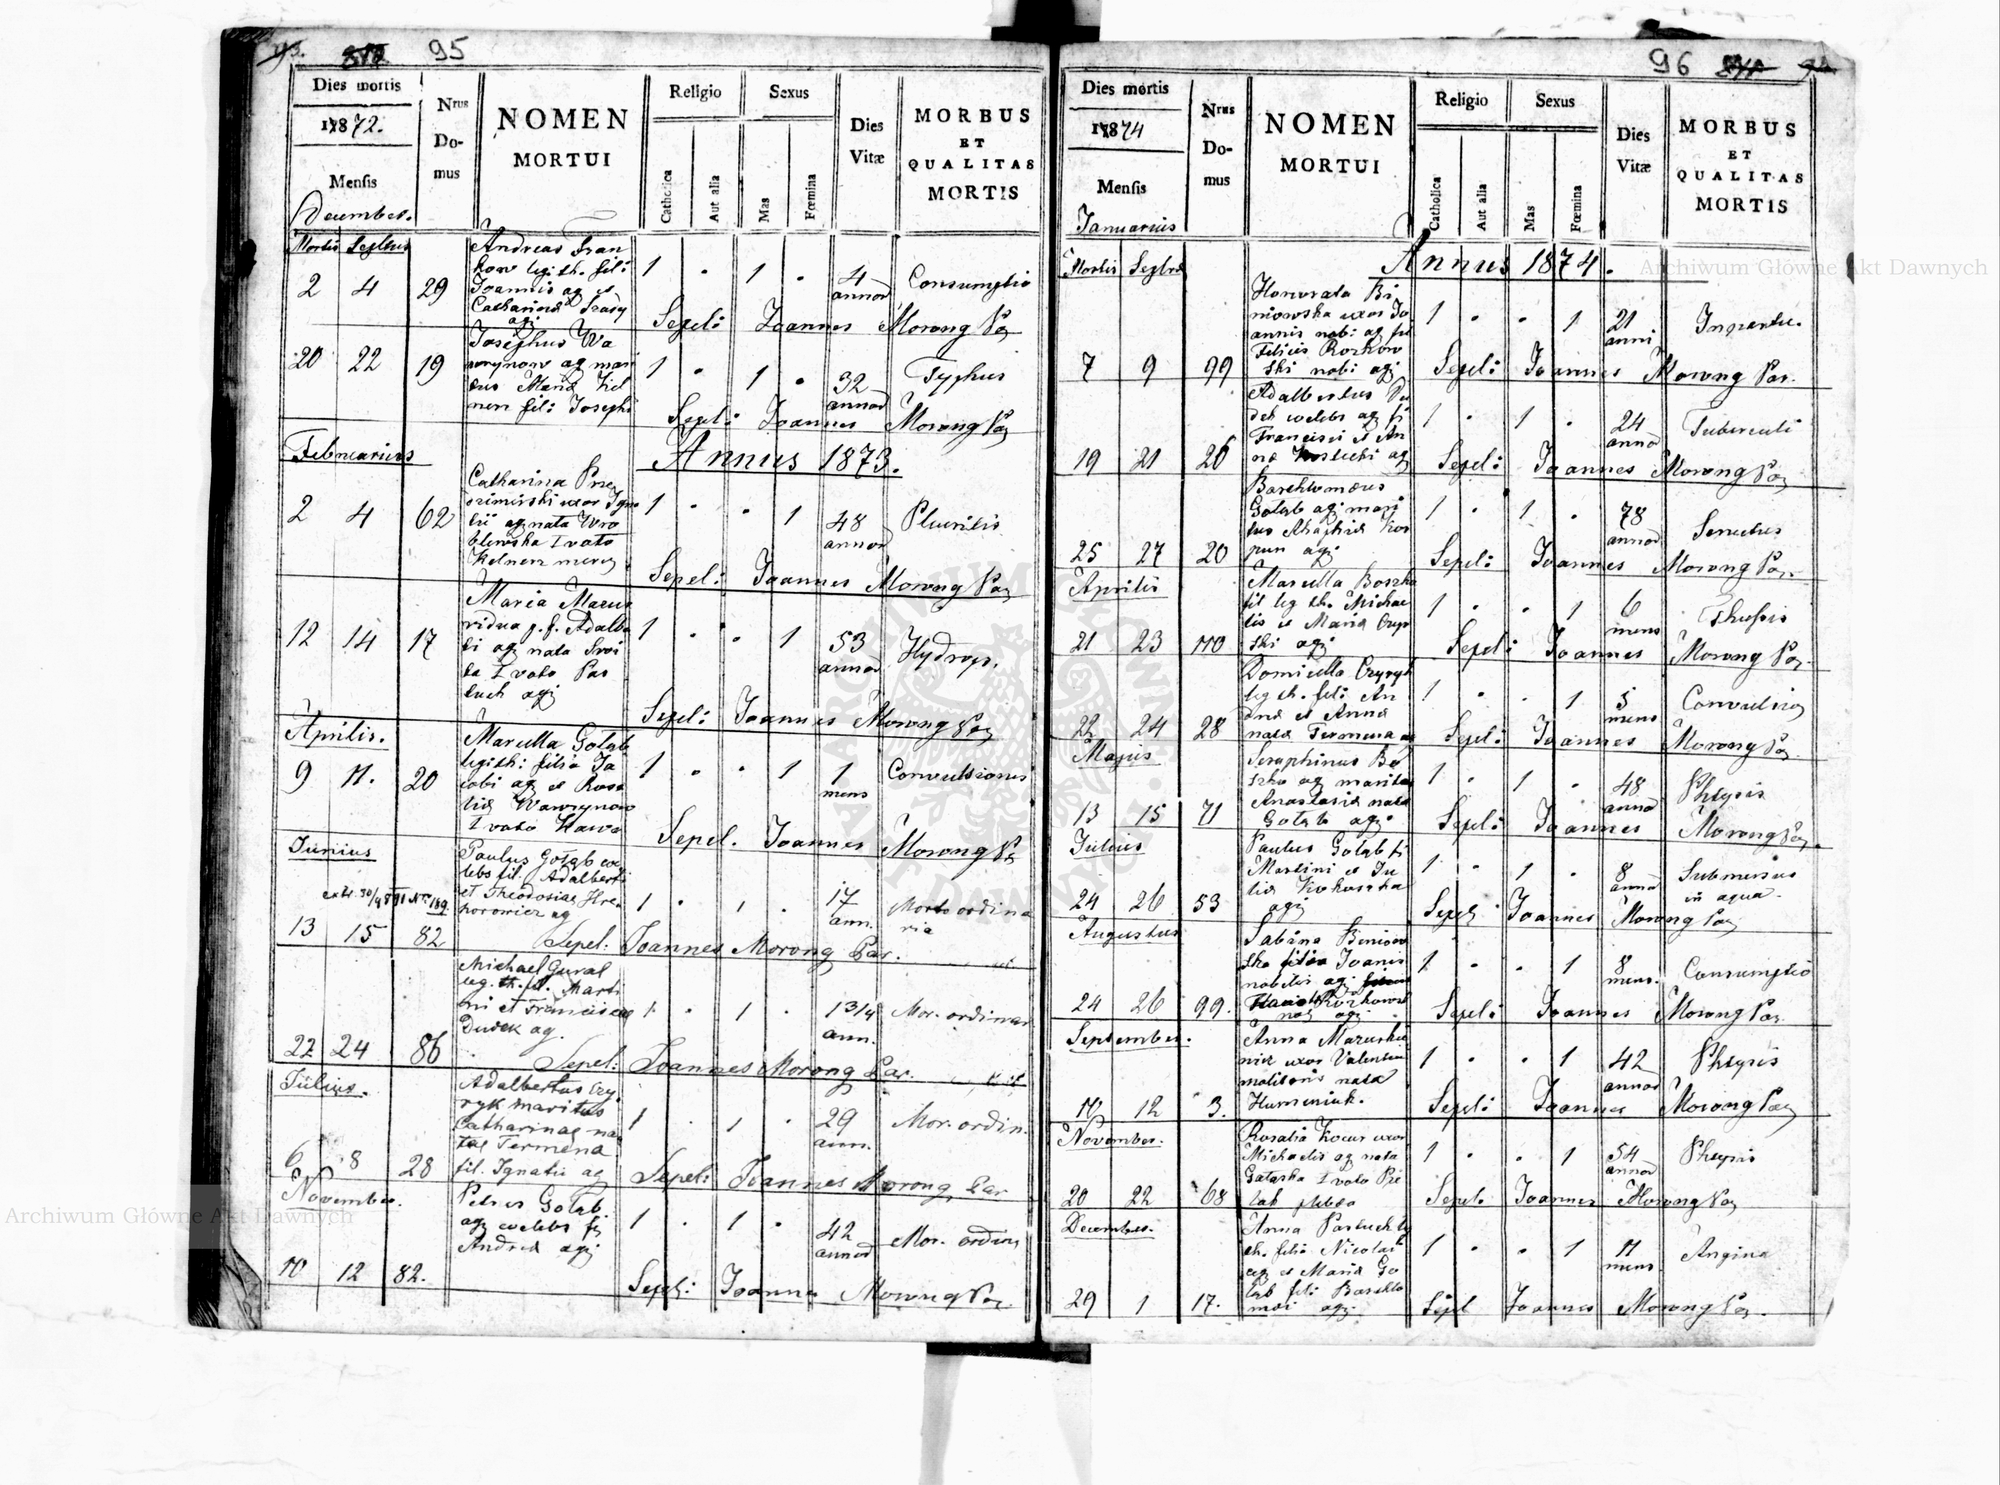 95
Dies mortis
1872.
Mensis
December.
Nrus Domus
NOMEN
MORTUI
Religio
Catholica
Aut alia
Sexus
Mas
Fœmina
Dies
Vitæ
MORBUS
ET
QUALITAS
MORTIS
Mortis Sepltus
Andreas Fran
kow legith. fil:
Joannis ag et
2 4 29
1 . 1 . 4 annor
Consumptio
Sepel: Joannes Morong Par
Josephus Wa
wrynow ag mari
tus Maria Kel
ner fil: Josephi
20 22 19
1 . 1 . 32 annor
Typhus
Sepel: Joannes Morong Par
Februarius
Annus 1873.
Catharina Prze
zimirski uxor Igna
tii ag nata Wro
blewska I voto
Kelnerz
2 4 62
1 . . 1 48 annor
Pleuritis
Sepel: Joannes Morong Par
Maria Mazur
vidua p. f. Adalber
ti ag nata
ta I voto Pas
tuch ag
12 14 17
1 . . 1 53 annor
Hydrops.
Sepel: Joannes Morong Par
Aprilis.
Marcella Gołąb
legith: filia Ja
cobi ag et Rosa
lia Wawrynow
I voto Kawa
9 11. 20
1 . . 1 1 mens
Convulsiones
Sepel. Joannes Morong Par
Junius
Paulus Gołąb cae
lebs fil. Adalberti
et Theodosiae Hre
horowicz ag
13 15 82
1 . 1 . 17 ann.
Morbo ordina
ria
Sepel: Joannes Morong Par.
Michael Gural
leg. th. fil. Marti
ni et Franciscae
Dudek ag.
22 24 86
1 . 1 . 13 1/4 ann.
Mor. ordinar
Sepel: Joannes Morong Par.
Julius.
Adalbertus Czy
ryk maritus
Catharinae na
tae Termena
fil. Ignatii ag
6 8 28
1 . 1 . 29 ann.
Mor. ordin.
Sepel: Joannes Morong Par
November.
Petrus Gołąb
ag coelebs fil
Andrea ag
10 12 82.
1 . 1 . 42 annor
Mor. ordin
Sepel: Joannes Morong Par.
96
Dies mortis
1874
Mensis
Januarius
Nrus Domus
NOMEN
MORTUI
Religio
Catholica
Aut alia
Sexus
Mas
Fœmina
Dies
Vitæ
MORBUS
ET
QUALITAS
MORTIS
Mortis Sepltus
Annus 1874.
Honorata Bi
niowska uxor Jo
annis nobi: ag fil
Felicis Rozkow
ski nobi ag:
7 9 99
1 . . 1 21 anni
Sepel: Joannes Morong Par.
Adalbertus Du
dek coelebs ag fil
Francisci et An
na
19 21 26
1 . 1 . 24 annor
Tuberculi
Sepel: Joannes Morong Par
Barthlomeus
Gołąb ag: mari
tus Agaphia Kor
pan ag:
25 27 20
1 . 1 . 78 annor
Senectus
Sepel: Joannes Morong Par.
Aprilis
Marcella Boszko
fil leg th. Michae
lis et Maria Czyr
ski ag:
21 23 70
1 . . 1 6 mens
Sepel: Joannes Morong Par.
Domicella Czyryk
leg th. fil: An
drea et Anna
nata Termena ag
22 24 28
1 . . 1 5 mens
Convulsio
Sepel: Joannes Morong Par.
Majus
Seraphinus Bo
szko ag maritus
Anastasia nata
Gołąb ag:
13 15 71
1 . 1 . 48 annor
Phtysis
Sepel: Joannes Morong Par.
Julius
Paulus Gołąb fil
Martini et Ju
lia Kokoszka
ag:
24 26 53
1 . 1 . 8 annor
Submersus
in aqua.
Sepel: Joannes Morong Par
Augustus
Sabina Beniow
ska filia Joanis
nobilis ag
Rozkowski
nob ag:
24 26 99.
1 . . 1 8 mens.
Consumptio
Sepel: Joannes Morong Par.
September.
Anna Mazurke
wicz uxor Valentini
molitoris nata
Humeniuk.
10 12 3.
1 . . 1 42 annor
Phtysis
Sepel: Joannes Morong Par
November.
Rosalia Kocur uxor
Michaelis ag nata
Gałaska I voto Pie
tak plebea
20 22 68
1 . . 1 54 annor
Phtysis
Sepel. Joannes Morong Par
December.
Anna Pastuch leg
th. filia Nicolai
ag et Maria Go
łąb fil: Barthlo
mei ag:
29 1 17.
1 . . 1 11 mens
Angina
Sepel Joannes Morong Par.
Archiwum Główne Akt Dawnych
Archiwum Główne Akt Dawnych
ARCHIWUM GŁÓWNE AKT DAWNYCH